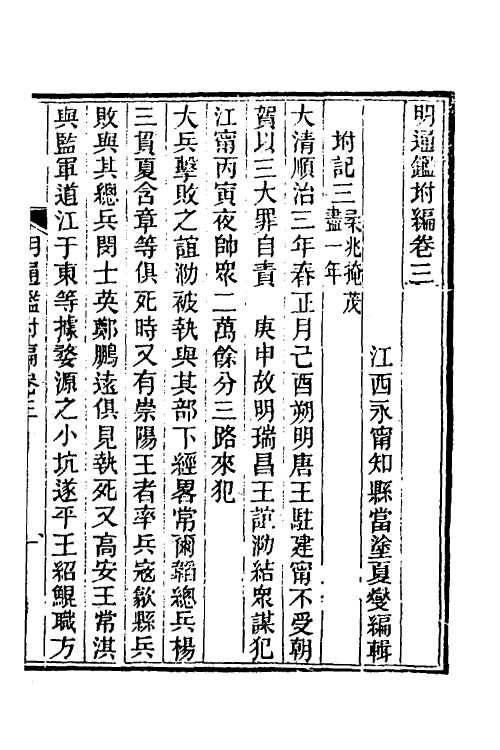 明通鑑坿編卷三
江西永甯知縣當塗夏燮編輯
坿記三柔兆掩茂盡一年
大清順治三年春正月己酉朔明唐王駐建甯不受朝
賀以三大罪自責　庚申故明瑞昌王誼泐結衆謀犯
江甯丙寅夜帥衆二萬餘分三路來犯
大兵擊敗之誼泐被執與其部下經畧常爾韜總兵楊
三貫夏含章等俱死時又有崇陽王者率兵寇歙縣兵
敗與其總兵閔士英鄭鵬遠俱見執死又高安王常淇
與監軍道江于東等據婺源之小坑遂平王紹鯤職方
明通鑑坿編卷三　一